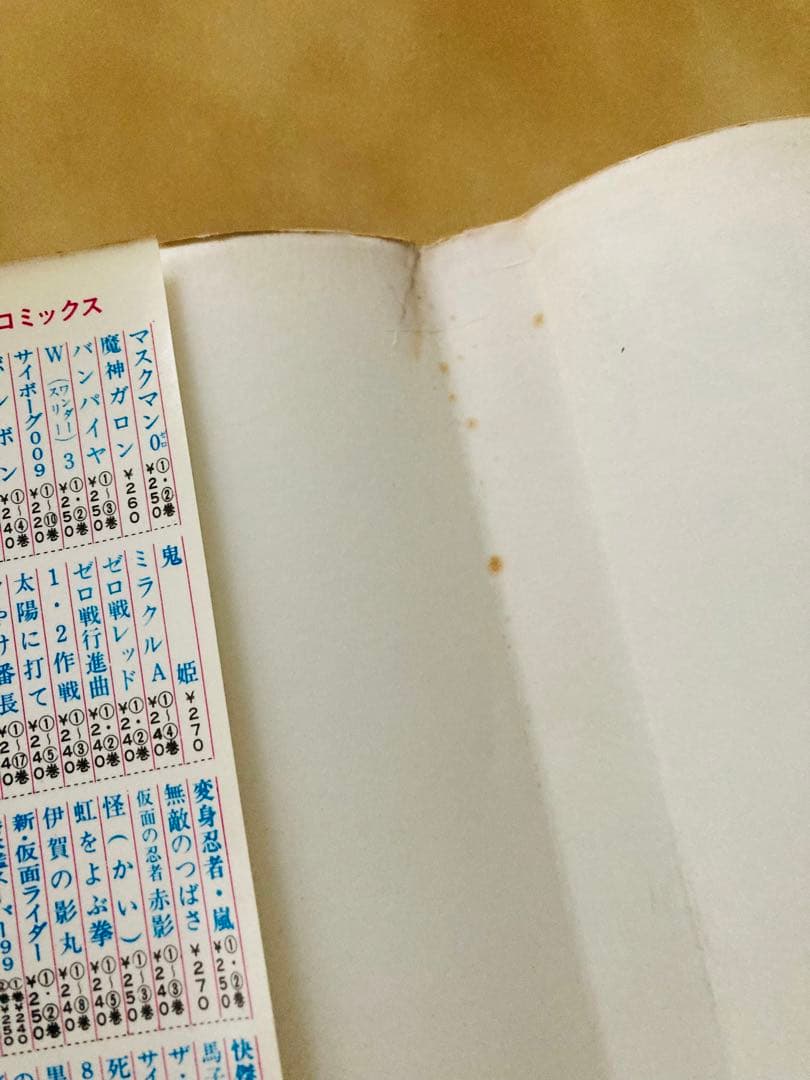 コミックス
マスクマン0 ゼロ ①・②巻 ¥250
魔神ガロン ¥260
バンパイヤ ①〜③巻 ¥250
W(ワンダースリー)3 ①・②巻 ¥250
サイボーグ009 ①〜⑩巻 ¥220
ンボン ①〜④巻 ¥240
鬼姫 ¥270
ミラクルA ①〜④巻 ¥240
ゼロ戦レッド ①・②巻 ¥240
ゼロ戦行進曲 ①・②巻 ¥240
1・2作戦 ①〜③巻 ¥240
太陽に打て ①〜⑤巻 ¥240
け番長 ①〜⑰巻 ¥240
変身忍者・嵐 ①・②巻 ¥250
無敵のつばさ ¥270
仮面の忍者赤影 ①〜③巻 ¥240
怪(かい) ①〜③巻 ¥250
虹をよぶ拳 ①〜⑤巻 ¥240
伊賀の影丸 ①〜⑧巻 ¥240
新・仮面ライダー ①・②巻 ¥250
199 ①巻¥240 ②巻¥250
快傑
馬子
ザ・
サイ
死
8
黒
の